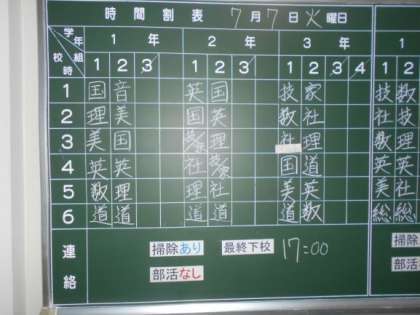 時間割表 7月7日火曜日
学年 1年 2年 3年
校時 組 1 2 3 1 2 3 1 2 3 4 1 2
1 国 音 英 国 技 家 技 数
2 理 美 国 英 数 社 社 技
3 美 国 理 社 理 数 理
4 英 英 社 国 道 英 英
5 数 理 理 社 美 英 美 社
6 道 道 道 道 道 数 総 総
連絡 掃除あり 最終下校 17:00 掃除
部活なし 部活